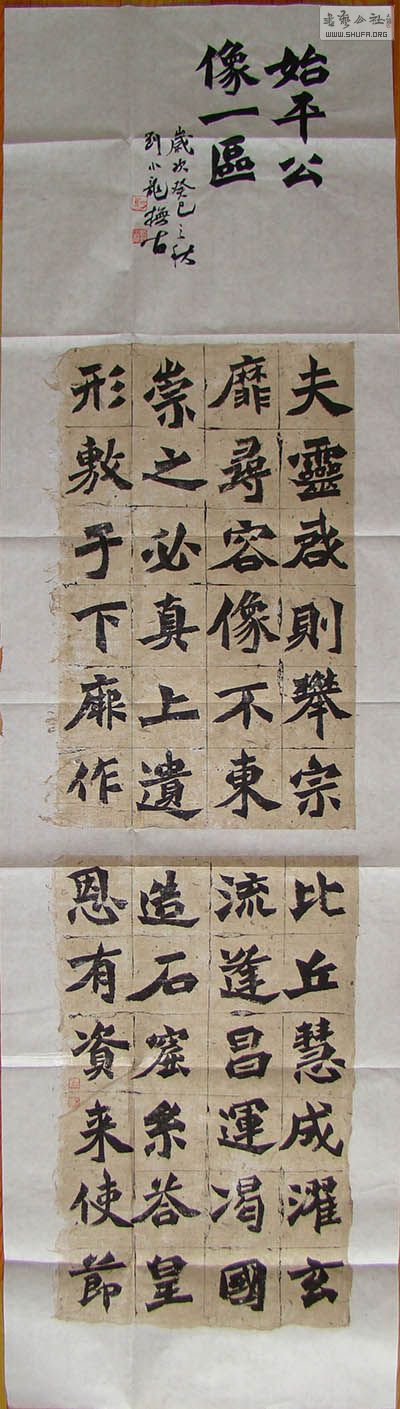 書藝公社
WWW.SHUFA.ORG
始平公
像一區
歲次癸巳之秋
劉小龍撫古
夫靈啟則攀宗
靡尋容像不東
崇之必真上遺
形敷于下厥作
比丘慧成濯玄
流逢昌運渴國
造石窟系答皇
恩有資来使節